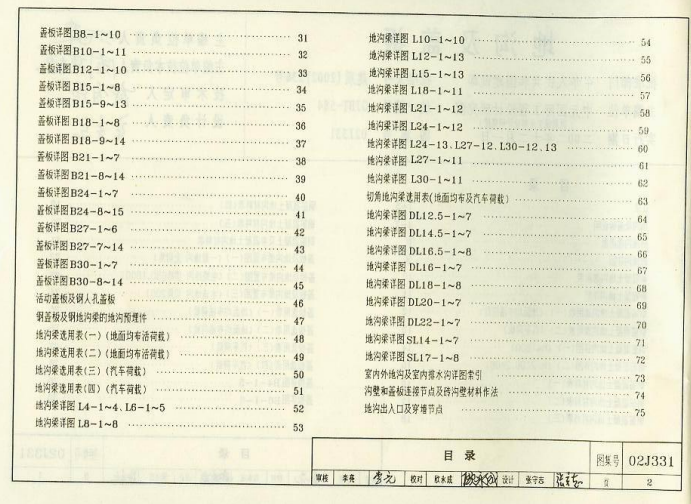 盖板详图B8-1~10 31
盖板详图B10-1~11 32
盖板详图B12-1~10 33
盖板详图B15-1~8 34
盖板详图B15-9~13 35
盖板详图B18-1~8 36
盖板详图B18-9~14 37
盖板详图B21-1~7 38
盖板详图B21-8~14 39
盖板详图B24-1~7 40
盖板详图B24-8~15 41
盖板详图B27-1~6 42
盖板详图B27-7~14 43
盖板详图B30-1~7 44
盖板详图B30-8~14 45
活动盖板及钢人孔盖板 46
钢盖板及钢地沟梁的地沟预埋件 47
地沟梁选用表(一)(地面均布活荷载) 48
地沟梁选用表(二)(地面均布活荷载) 49
地沟梁选用表(三)(汽车荷载) 50
地沟梁选用表(四)(汽车荷载) 51
地沟梁详图 L4-1~4、L6-1~5 52
地沟梁详图 L8-1~8 53
地沟梁详图 L10-1~10 54
地沟梁详图 L12-1~13 55
地沟梁详图 L15-1~13 56
地沟梁详图 L18-1~11 57
地沟梁详图 L21-1~12 58
地沟梁详图 L24-1~12 59
地沟梁详图 L24-13、L27-12、L30-12、13 60
地沟梁详图 L27-1~11 61
地沟梁详图 L30-1~11 62
切角地沟梁选用表(地面均布及汽车荷载) 63
地沟梁详图 DL12.5-1~7 64
地沟梁详图 DL14.5-1~7 65
地沟梁详图 DL16.5-1~8 66
地沟梁详图 DL16-1~7 67
地沟梁详图 DL18-1~8 68
地沟梁详图 DL20-1~7 69
地沟梁详图 DL22-1~7 70
地沟梁详图 SL14-1~7 71
地沟梁详图 SL17-1~8 72
室内外地沟及室内排水沟详图索引 73
沟壁和盖板连接节点及砖沟壁材料作法 74
地沟出入口及穿墙节点 75
目录 图集号 02J331
审核 校对 设计 张守志 页 2